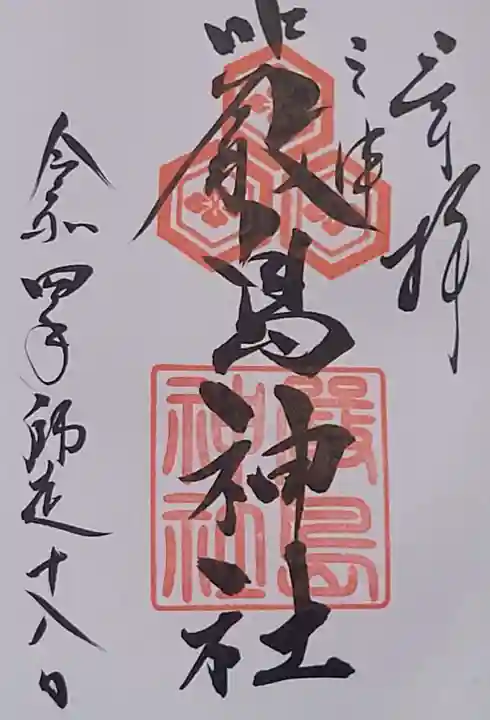 奉拝
三津
厳島神社
嚴島
神社
令和四年師走十八日